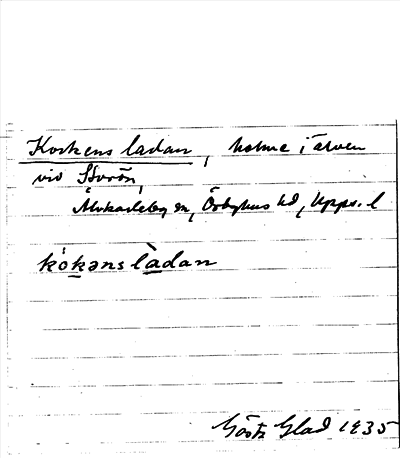 Korkens ladan, holme i älven
vid Storön,
Älvkarleby sn, Örbyhus hd, Upps. l
kòkəns làdan
Gösta Glad 1935